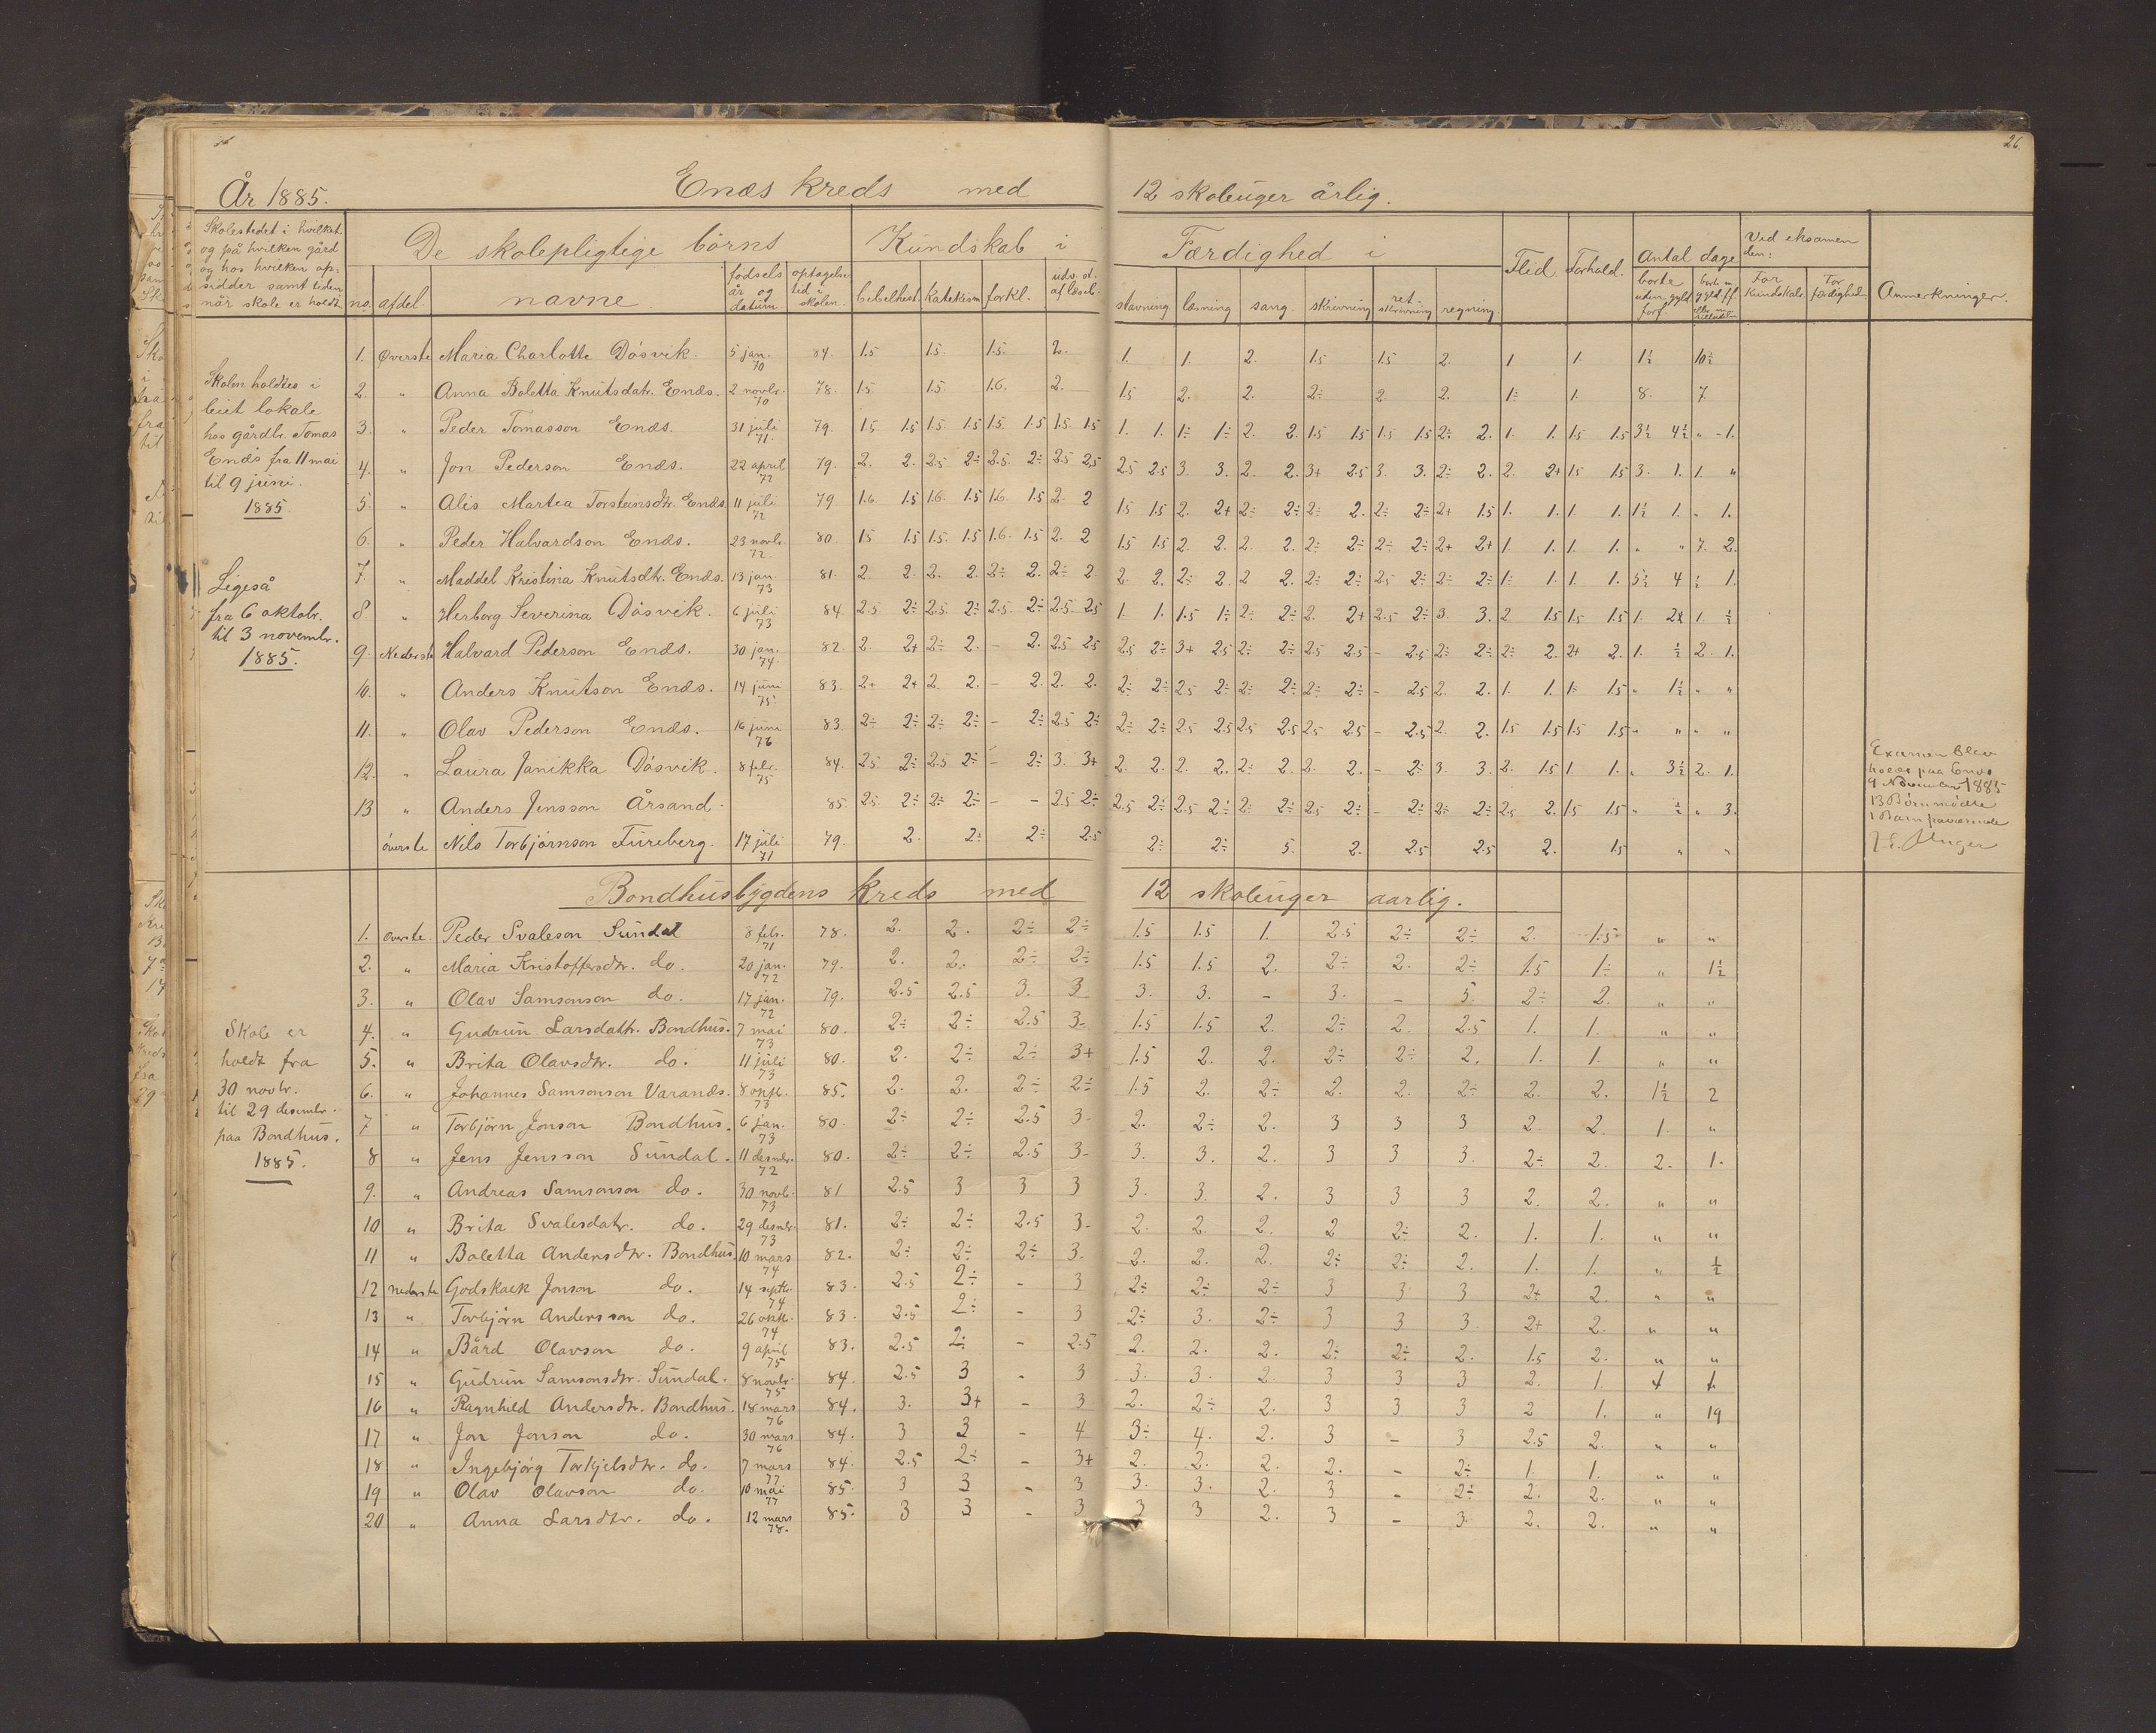 26
År 1885. Enæs kreds med 12 skoleuger årlig.
Skolestedet i hvilket og på hvilken gård og hos hvilken opsidder samt tiden når skole er holdt
De skolepligtige börns
no. afdel. navne fødsels år og datum optagelsestid i skolen.
Kundskab i
bibelhist. katekism forkl. udv. st. af læseb.
Færdighed i
stavning læsning sang. skrivning retskrivning regning
Flid. Forhold. Antal dage
borte uden gyld. forf.
Ved eksamen den:
For kundskab. For færdighed.
Anmerkninger.
Skolen holdtes i leiet lokale hos gårdbr. Tomas Enæs fra 11 mai til 9 juni. 1885.
Ligeså fra 6 oktobr. til 3 novembr. 1885.
1. Øverste Maria Charlotte Dösvik. 5 jan. 70 84. 1.5 1.5. 1.5. 2. 1. 1. 2. 1.5 1.5 2. 1 1. 1½ 10½
2. " Anna Boletta Knutsdatr. Enæs. 2 novbr. 70 78. 1.5 1.5. 1.6. 2. 1.5 2. 2. 2÷ 2. 2. 1÷ 1. 8. 7.
3. " Peder Tomasson Enæs. 31 juli 71. 79. 1.5. 1.5 1.5 1.5 1.5. 1.5 1.5. 1.5 1. 1. 1÷ 1÷ 2. 2. 1.5 1.5 1.5 1.5 2÷ 2. 1. 1. 1.5 1.5 3½ 4½ " -1.
4. " Jon Pederson Enæs. 22 april 72 79. 2. 2. 2.5 2÷ 2.5. 2÷ 2.5 2.5 2.5 2.5 3. 3. 2. 2. 3+ 2.5 3. 3. 2÷ 2. 2. 2+ 1.5 1.5 3. 1. 1. "
5. " Alis Martea Torsteinsdtr. Enæs. 11 juli 72 79 1.6. 1.5 1.6. 1.5 1.6. 1.5 2. 2 1.5 1.5 2. 2+ 2÷ 2÷ 2÷ 2. 2÷ 2÷ 2+ 1.5 1. 1. 1. 1. 1½ 1. " 1.
6. " Peder Halvardson Enæs. 23 novbr. 72. 80 1.5 1.5 1.5. 1.5 1.6. 1.5 2. 2 1.5 1.5 2. 2. 2. 2. 2÷ 2÷ 2÷ 2÷ 2+ 2+ 1. 1. 1. 1. " " 7. 2.
7. " Maddel Kristina Knutsdtr. Enæs. 13 jan. 73 81. 2. 2. 2. 2. 2÷ 2. 2÷ 2. 2. 2. 2÷ 2. 2 2. 2÷ 2÷ 2.5 2÷ 2÷ 2÷ 1÷ 1. 1. 1. 5½ 4 ½ 1.
8 " Herborg Severina Dösvik. 6 juli 73 84. 2.5 2÷ 2.5. 2÷ 2.5. 2÷ 2.5 2.5 1. 1. 1.5 1÷ 2÷ 2÷ 2. 2+ 2.5 2÷ 3. 3. 2. 1.5 1.5 1.5 1. 2½ 1 ½
9. Nederste Halvard Pederson Enæs. 30 jan. 74. 82. 2. 2+ 2÷ 2. - 2. 2.5 2.5 2.5 2÷ 3+ 2.5 2÷ 2÷ 2.5 2.5 - 2.5 2÷ 2÷ 2÷ 2. 2+ 2. 1. ½ 2. 1.
10. " Anders Knutson Enæs. 14 juni 75 83. 2+ 2+ 2. 2. - 2. 2. 2. 2÷ 2÷ 2.5 2÷ 2÷ 2÷ 2÷ 2÷ - 2.5 2. 2. 1. 1. 1÷ 1.5 " 1½ " "
11. " Olav Pederson Enæs. 16 juni 76 83. 2÷ 2÷ 2÷ 2÷ - 2÷ 2.5 2÷ 2÷ 2÷ 2.5 2.5 2.5 2.5 2.5 2.5 - 2.5 2. 2. 1.5 1.5 1.5 1.5 " " " "
12. " Laura Janikka Dösvik. 8 febr. 75 84. 2.5. 2÷ 2.5 2÷ - 2÷ 3. 3+ 2. 2. 2. 2. 2÷ 2. 2. 2. - 2÷ 3. 3. 2. 1.5 1. 1. " 3½ 2. 1.
13 " Anders Jensson Årsand. 85 2.5 2÷ 2÷ 2÷ - - 2.5 2÷ 2.5 2÷ 2.5 2÷ 2÷ 2÷ 2.5 2÷ - 2÷ 2÷ 2÷ 2.5 2. 1.5 1.5 " ½ " 3.
överste Nils Torbjörnson Fureberg. 17 juli 71 79. 2. 2÷ 2÷ 2.5 2÷ 2÷ 5. 2. 2.5 2.5 2. 1.5 " "
Examen blev
holdt paa Enæs
9 November 1885
13 Börn mödte
1 Barn fraværende
Bondhusbygdens kreds med 12 skoleuger aarlig.
Skole er holdt fra 30 novbr. til 29 desembr. paa Bondhus. 1885.
1. överste Peder Svaleson Sundal 8 febr. 71 78. 2. 2. 2÷ 2÷ 1.5 1.5 1. 2.5 2÷ 2÷ 2. 1.5 " "
2. " Maria Kristoffersdtr. do. 20 jan. 72 79. 2. 2. 2÷ 2÷ 1.5 1.5 2. 2÷ 2. 2÷ 1.5 1÷ " 1½
3. " Olav Samsonson do. 17 jan. 72 79. 2.5 2.5 3. 3 3. 3. - 3. - 5. 2÷ 2. " "
4. " Gudrun Larsdattr. Bondhus. 7 mai 73 80. 2÷ 2÷ 2.5 3- 1.5 1.5 2. 2÷ 2. 2.5 1. 1. " "
5. " Brita Olavsdtr. do. 11 juli 73 80. 2. 2÷ 2÷ 3+ 1.5 2. 2. 2÷ 2÷ 2. 1. 1. " "
6. " Johannes Samsonson Varands. 8 oktb. 73 85. 2. 2. 2÷ 2÷ 1.5 2. 2÷ 2. 2. 2÷ 2. 2. 1½ 2
7 " Torbjörn Jonson Bondhus. 6 jan. 73 80. 2÷ 2÷ 2.5 3- 2. 2÷ 2. 3 3 3 2 2. 1. "
8 " Jens Jensson Sundal. 11 desmbr. 72 80. 2÷ 2÷ 2.5 3- 3. 3. 2. 3 3 3. 2÷ 2. 2. 1.
9. " Andreas Samsonson do. 30 novb. 73 81 2.5 3 3 3 3. 3. 2. 3 3 3 2. 2. " "
10 " Brita Svalesdatr. do. 29 desmbr. 73 81. 2÷ 2÷ 2.5 3- 2. 2. 2. 2 2÷ 2. 1. 1. " "
11 " Boletta Andersdtr. Bondhus. 10 mars 74 82. 2÷ 2÷ 2÷ 3. 2. 2. 2. 2÷ 2÷ 2. 1. 1. " ½
12 nederste Godskalk Jonson do. 14 septbr. 74 83. 2.5 2÷ - 3 2÷ 2÷ 2÷ 3 3 3 2+ 2. " "
13 " Torbjörn Andersson do. 26 oktb. 74 83. 2.5 2÷ - 3 2÷ 3. 2÷ 3 3 3. 2+ 2. " "
14 " Bård Olavson do. 9 april 75 83. 2.5 2÷ - 2.5 2. 2. 2. 2÷ 2÷ 2. 1.5 2. " "
15 " Gudrun Samsonsdtr. Sundal. 8 novbr. 75 84. 2.5 3 - 3 3. 3. 2. 3 3 3 2. 1.
16 " Ragnhild Andersdtr. Bondhus. 18 mars 76 84. 3. 3+ - 3 2. 2÷ 2. 3 3 3 2 1. " 19
17 " Jon Jonson do. 30 mars 76 84. 3 3 - 4 3÷ 4. 2. 3 - 3 2.5 2. " "
18 " Ingebjörg Torkjelsdtr. do. 7 mars 77 84. 2.5 2÷ - 3+ 2. 2. 2. 2. - 2÷ 1. 1. " "
19 " Olav Olavson do. 10 mai 77 85. 3 3 - 3 3. 3. 2. 3 - 2÷ 2. 2. " "
20 " Anna Larsdtr. do. 12 mars 78. 85. 3 3 - 3 3 3 2. 3 - 3. 2. 2. " "